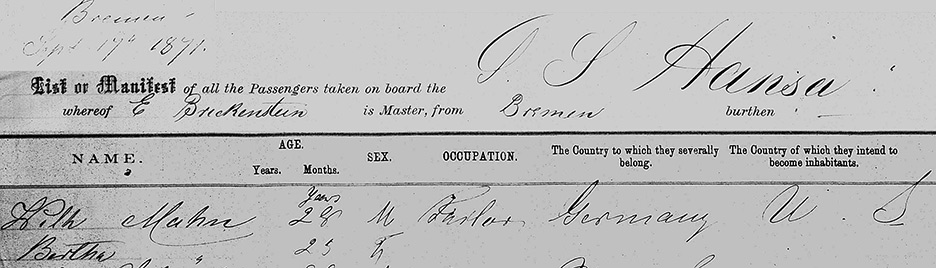 Bremen
Sept 17th 1871.
List or Manifest of all the Passengers taken on board the S S Hansa
whereof E Brickenstein is Master, from Bremen burthen
NAME. AGE. SEX. OCCUPATION. The Country to which they severally belong. The Country of which they intend to become inhabitants.
Years. Months.
Years
Wilh Mahn 28 M Tailor Germany U. S
Bertha "